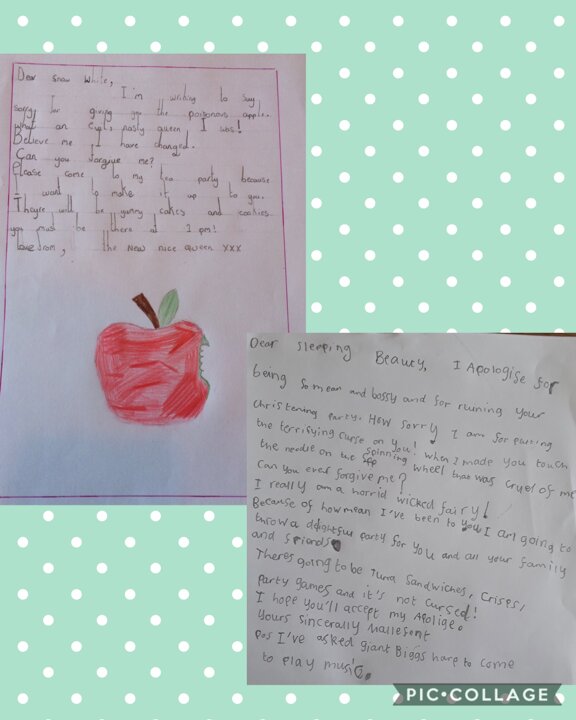 Dear Snow White,
I'm writing to say
sorry for giving you the poisonous apple.
what an evil nasty queen I was!
Believe me I have changed.
Can you forgive me?
Please come to my tea party because
I want to make it up to you.
Theyre will be yummy cakes and cookies
you must be there at 2 pm!
love from, the New nice queen xxx
Dear sleeping Beauty, I Apologise for
being so mean and bossy and for ruining your
christening party. How sorry I am for putting
the terrifying curse on you! when I made you touch
the needle on the spinning wheel that was cruel of me
Can you ever forgive me?
I really am a horrid wicked fairy!
Because of how mean I've been to you I am going to
throw a delightful party for you and all your family
and friends
Theres going to be Tuna Sandwiches, Crisps,
party games and it's not cursed!
I hope you'll accept my Apolige.
Yours sincerally Mallefsent
pos I've asked giant Biggs harp to come
to play music.
PIC•COLLAGE